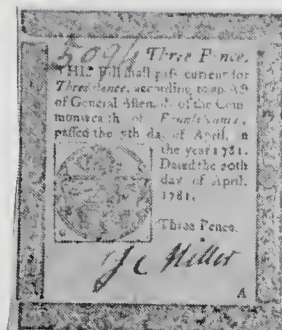 5094 Three Pence.
THIS Bill shall pass current for
Three Pence, according to an Act
of General Assembly of the Com-
monwealth of Pennsylvania,
passed the 7th day of April, in
the year 1781.
Dated the 20th
day of April,
1781.
Three Pence.
J C Miller
A